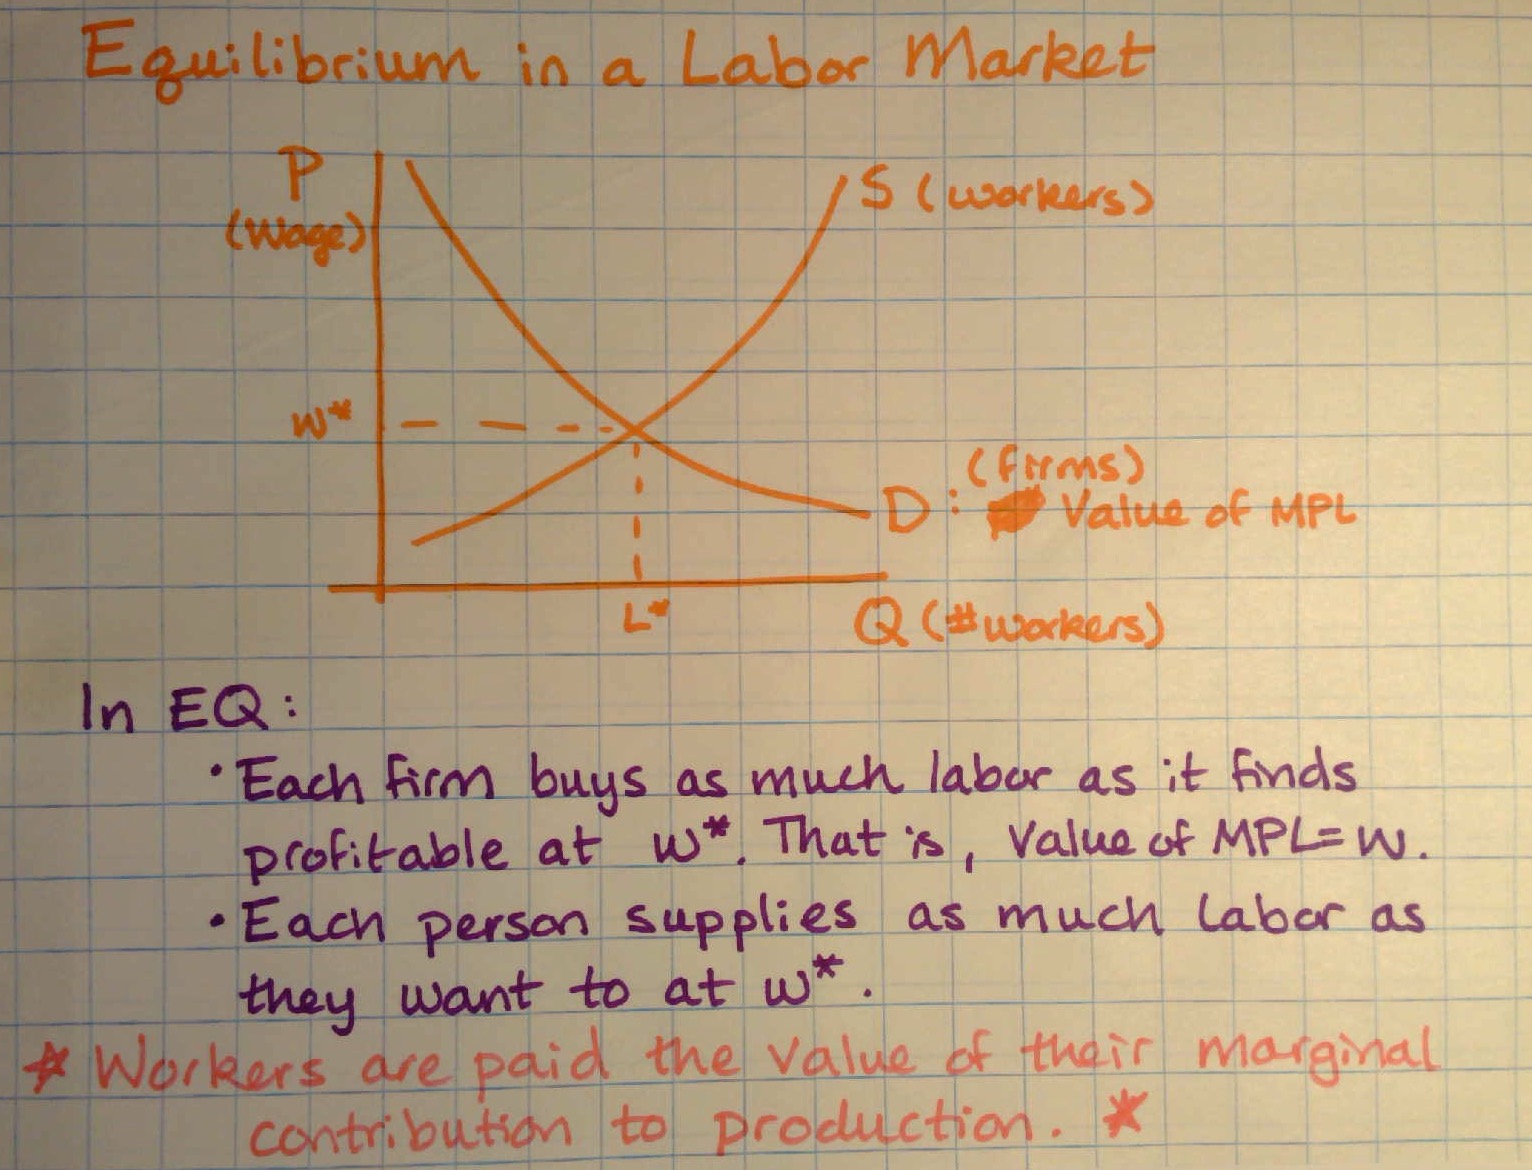 Equilibrium in a Labor Market
P
(Wage)
S (workers)
W*
(firms)
D: Value of MPL
L*
Q (#workers)
In EQ:
• Each firm buys as much labor as it finds
profitable at w*. That is, Value of MPL=W.
• Each person supplies as much labor as
they want to at w*.
* Workers are paid the value of their marginal
contribution to production. *